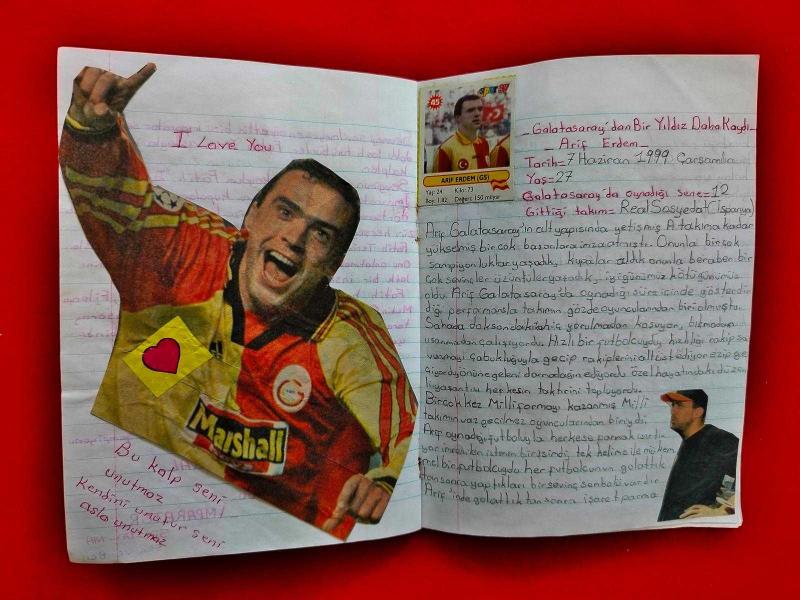 I Love You
Marshall
Bu kalp seni
unutmaz
Kendini unutur seni
asla unutmaz
45
ARİF ERDEM (GS)
Yaş: 24 Kilo: 73
Boy: 1.82 Değeri: 150 milyar
Galatasaray'dan Bir Yıldız Daha Kaydı
Arif Erdem
Tarih=7 Haziran 1999 Çarşamba
Yaş=27
Galatasaray'da oynadığı sene=12
Gittiği takım=Real Sosyedat (İspanya)
Arif Galatasaray'ın alt yapısında yetişmiş A takıma kadar
yükselmiş bir çok başarılara imza atmıştı. Onunla bir çok
şampiyonluklar yaşadık, kupalar aldık onunla beraber bir
çok sevinçler üzüntüler yaşadık, iyi günümüz kötü günümüz
oldu Arif Galatasaray'da oynadığı süre içinde gösterdi
diği performansla takımın gözde oyuncularından biri olmuştu.
Sahada doksan dakika hiç yorulmadan koşuyor, bıkmadan
usanmadan çalışıyordu. Hızlı bir futbolcuydu, hızlılığı rakip sa
vunmayı çabukluğuyla geçip rakiplerini alt üst ediyor ezip ge
çiyordu önüne geleni darmadağın ediyordu özel hayatındaki düzen
li yaşantısı herkesin taktirini topluyordu.
Bir çok kez Milli formayı kazanmış Milli
takımın vaz geçilmez oyuncularından biriydi.
Arif oynadığı futboluyla herkese parmak ısırtı
yor imrenilen istenen birisiydi, tek kelime ile mükem
mel bir futbolcuydu her futbolcunun golattık
tan sonra yaptıkları bir sevinç senbolü vardır
Arif'inde golattıktan sonra işaret parma